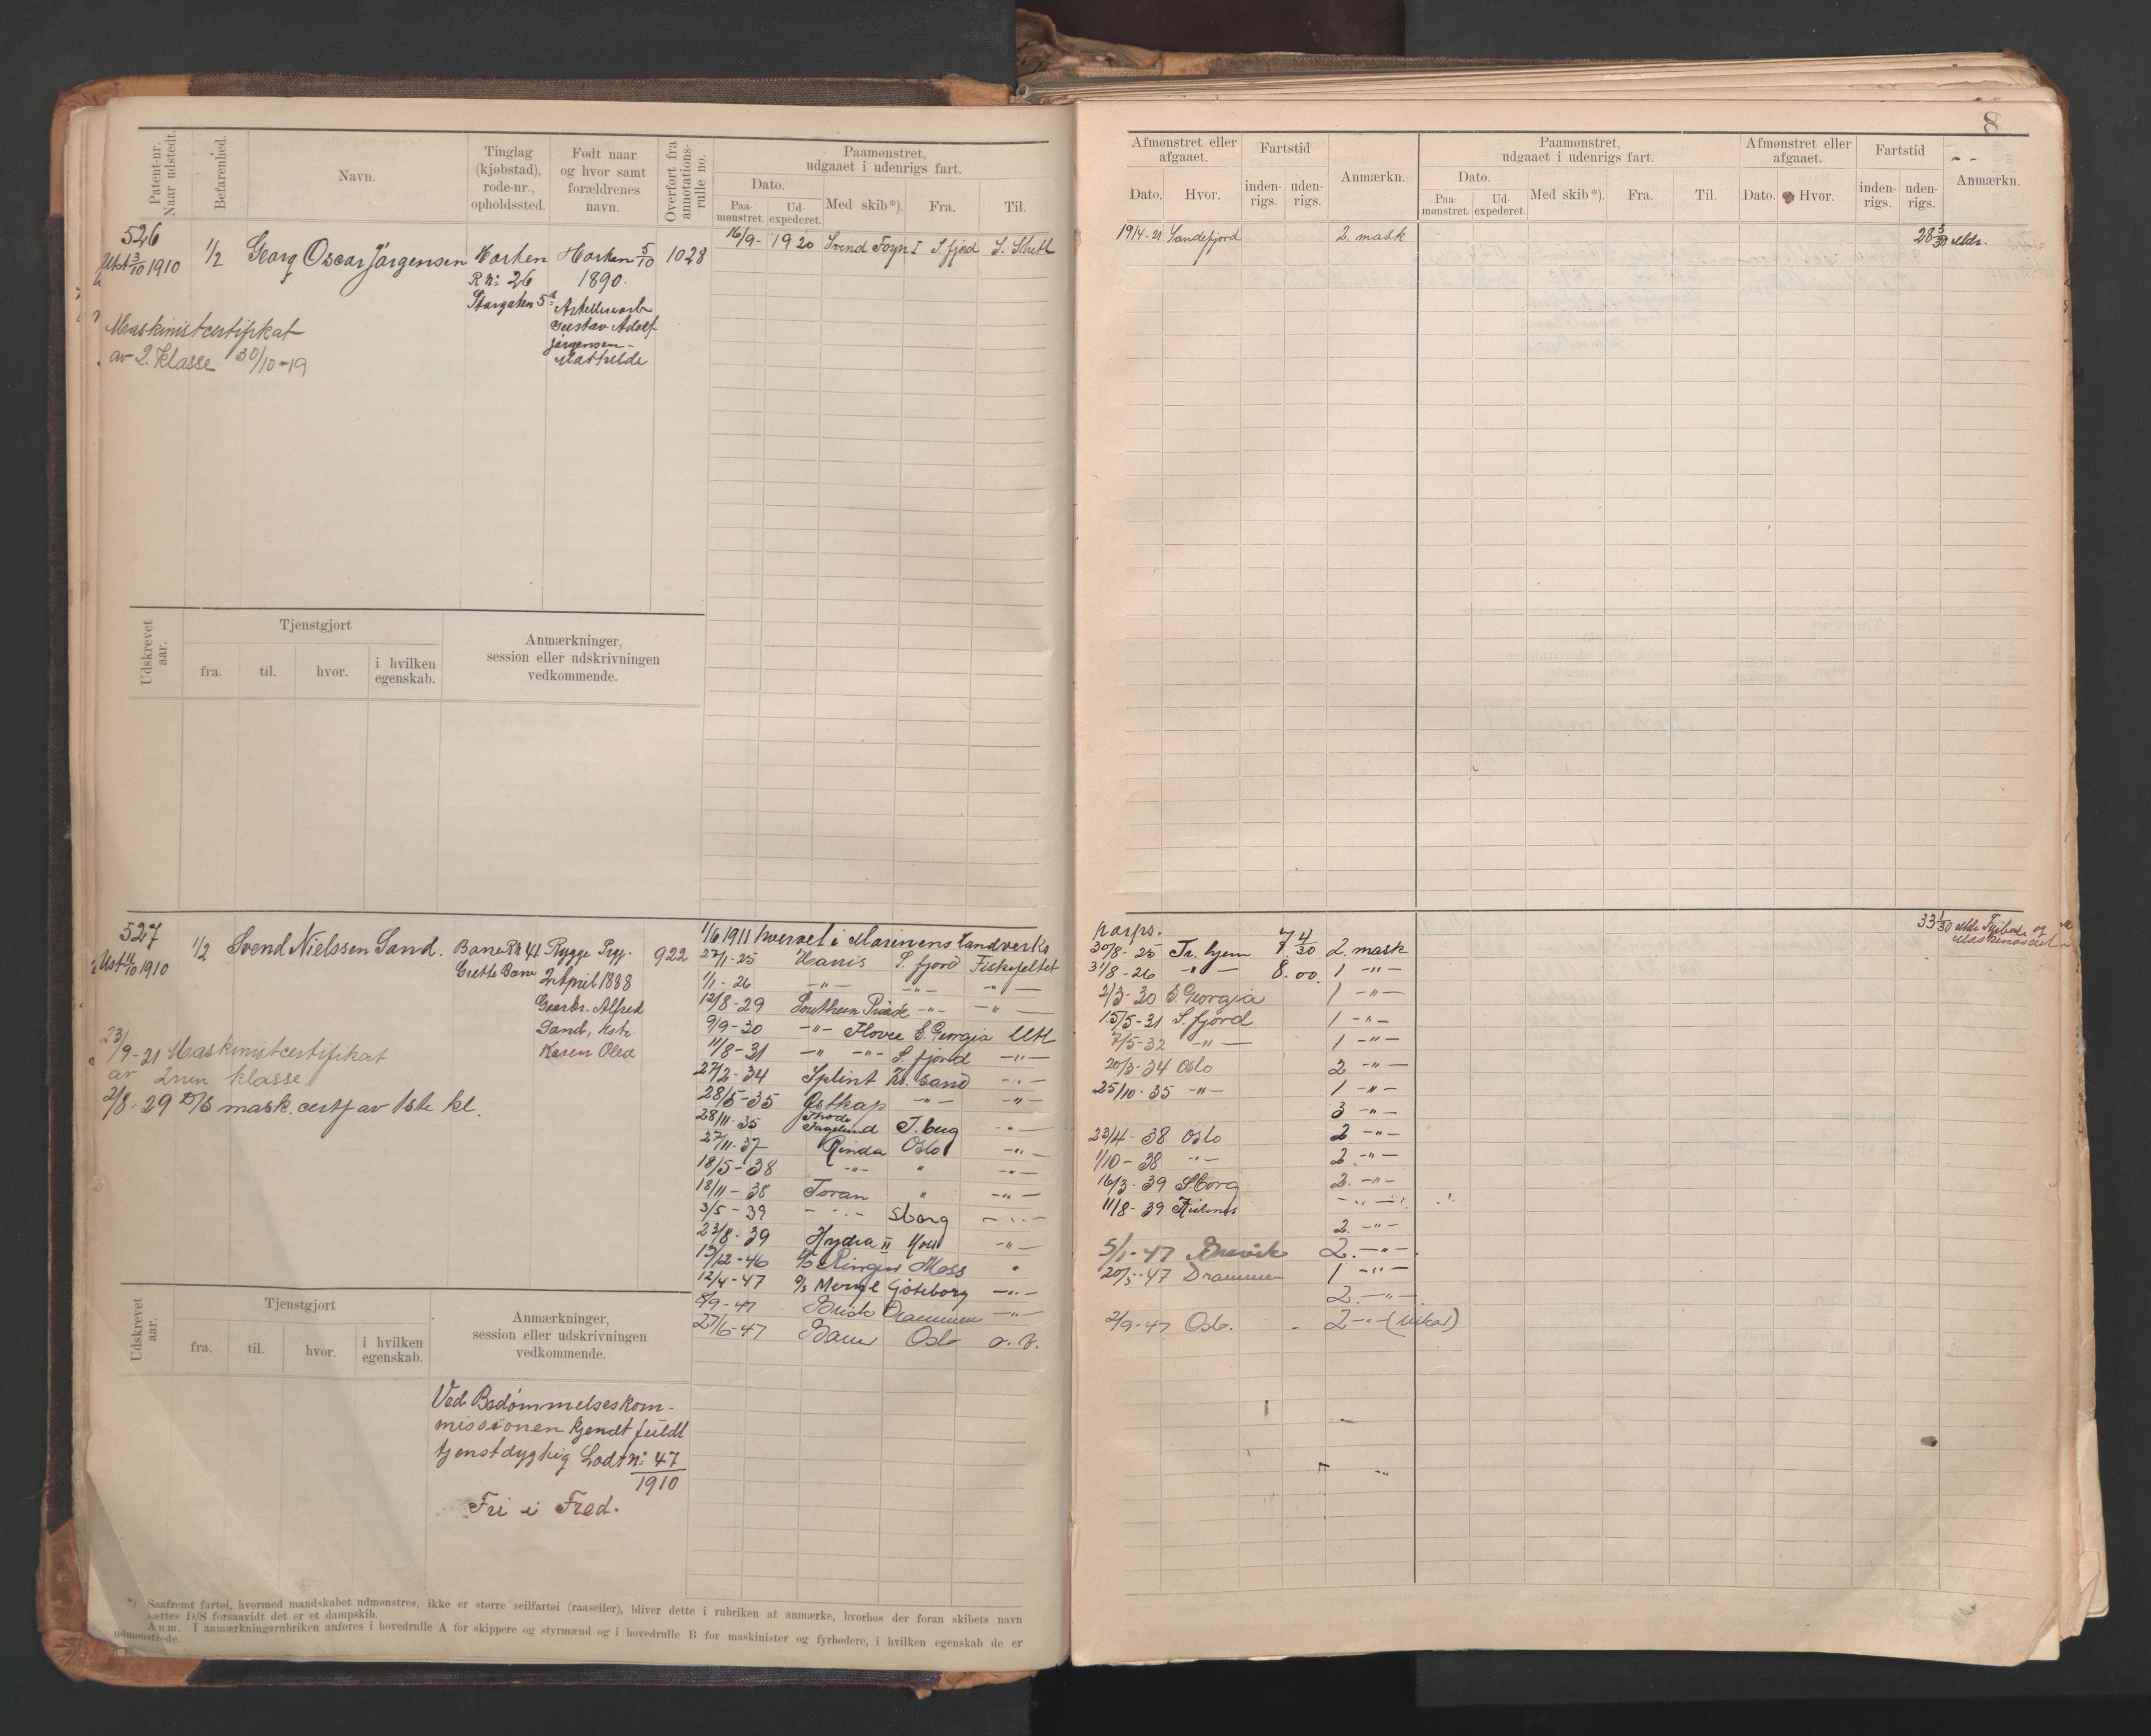 8
Patent-nr. Naar udstedt.
Befarenhed.
Navn.
Tinglag (kjøbstad), rode-nr., opholdssted.
Født naar og hvor samt forældrenes navn.
Overført fra annotations-rulle no.
Paamønstret, udgaaet i udenrigs fart.
Dato.
Paa-mønstret.
Ud-expederet.
Med skib*).
Fra.
Til.
Afmønstret eller afgaaet.
Fartstid
Dato.
Hvor.
inden-rigs.
uden-rigs.
Anmærkn.
Paamønstret, udgaaet i udenrigs fart.
Dato.
Paa-mønstret.
Ud-expederet.
Med skib*).
Fra.
Til.
Afmønstret eller afgaaet.
Fartstid
Dato.
Hvor.
inden-rigs.
uden-rigs.
Anmærkn.
526
Utst 3/10 1910
1/2
Georg Oscar Jørgensen
Horten
R n: 26
Storgaten 5
Horten 5/10
1890.
Gustav Adolf
Jørgensen -
Mathilde
1028
16/9- 1920 Svend Foyn I S. fjord S. Shetl
19/4-21 Sandefjord 2. mask
28 3/30 Mdr.
Maskinistcertifikat
av 2. Klasse 30/10-19
Udskrevet aar.
Tjenstgjort
fra.
til.
hvor.
i hvilken egenskab.
Anmærkninger, session eller udskrivningen vedkommende.
527
Utst 11/10 1910
1/2
Svend Nielssen Sand.
Bane R n 41
Rygge Pgj.
2 April 1888
Alfred
Sand,
Karen
922
1/6 1911 hvervet i Marinens Handverks
korps.
33 1/30 Mdr
27/1-25 Harris S. fjord Fiskefeltet
30/8-25 Tr. hjem 7 4/30 2. mask
1/1-26 -"- -"- -"-
31/8-26 -"- 8.00. 1 -"-
12/8-29 Southern -"- -"-
2/3-30 S. Georgia 1 -"-
9/9-30 -"- S. Georgia Utl
15/5-31 S. fjord 1 -"-
11/8-31 -"- -"- S. fjord -"-
7/5-32 -"- 1 -"-
27/2-34 Splint Kr. sand -"-
20/3-34 Oslo 2 -"-
28/5-35 Østkap -"- -"-
25/10-35 -"- 1 -"-
28/11-35 Thode Fagelund T. berg -"-
3 -"-
27/11-37 Rinda Oslo -"-
23/4-38 Oslo 2 -"-
18/5-38 -"- " -"-
1/10-38 -"- 2 -"-
18/11-38 Toran " -"-
16/3-39 S borg 2 -"-
3/5-39 -"- Sborg -"-
11/8-39
23/8-39 Hydra II -"-
2. -"-
13/12-46 Ringer Moss "
5/1-47 Brevik 2. -"-
12/4-47 Göteborg -"-
20/5-47 Drammen 1 -"-
8/9-47 Drammen -"-
2. -"-
27/6-47 Oslo
2/9-47 Oslo. 2 -"- (vikar)
23/9-21 Maskinistcertifikat
av 2nen klasse.
2/8-29 D/S mask. certf av 1ste kl.
Udskrevet aar.
Tjenstgjort
fra.
til.
hvor.
i hvilken egenskab.
Anmærkninger, session eller udskrivningen vedkommende.
Ved Bedømmelseskom-
missionen kjendt fuldt
tjenstdygtig Lodt n: 47
1910
Fri i Fred.
*) Saafremt fartøi, hvormed mandskabet udmønstres, ikke er større seilfartøi (raaseiler), bliver dette i rubriken at anmærke, hvorhos der foran skibets navn
sættes D/S forsaavidt det er et dampskib.
Anm. I anmærkningsrubriken anføres i hovedrulle A for skippere og styrmænd og i hovedrulle B for maskinister og fyrbødere, i hvilken egenskab de er
udmønstrede.